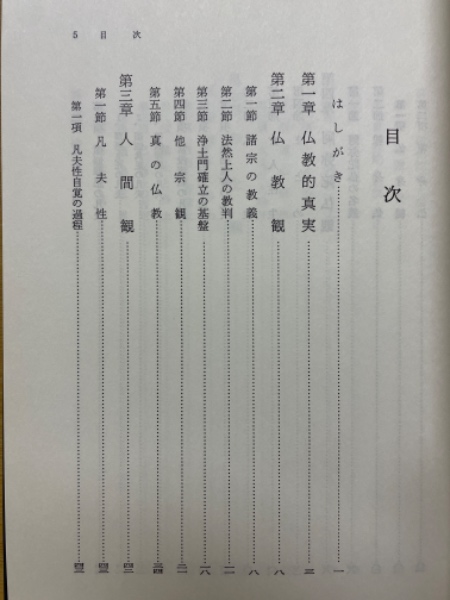 5 目次
目次
はしがき……一
第一章 仏教的真実……三
第二章 仏教観……八
第一節 諸宗の教義……八
第二節 法然上人の教判……一一
第三節 浄土門確立の基盤……一八
第四節 他宗観……二一
第五節 真の仏教……三四
第三章 人間観……四三
第一節 凡夫性……四三
第一項 凡夫性自覚の過程……四三